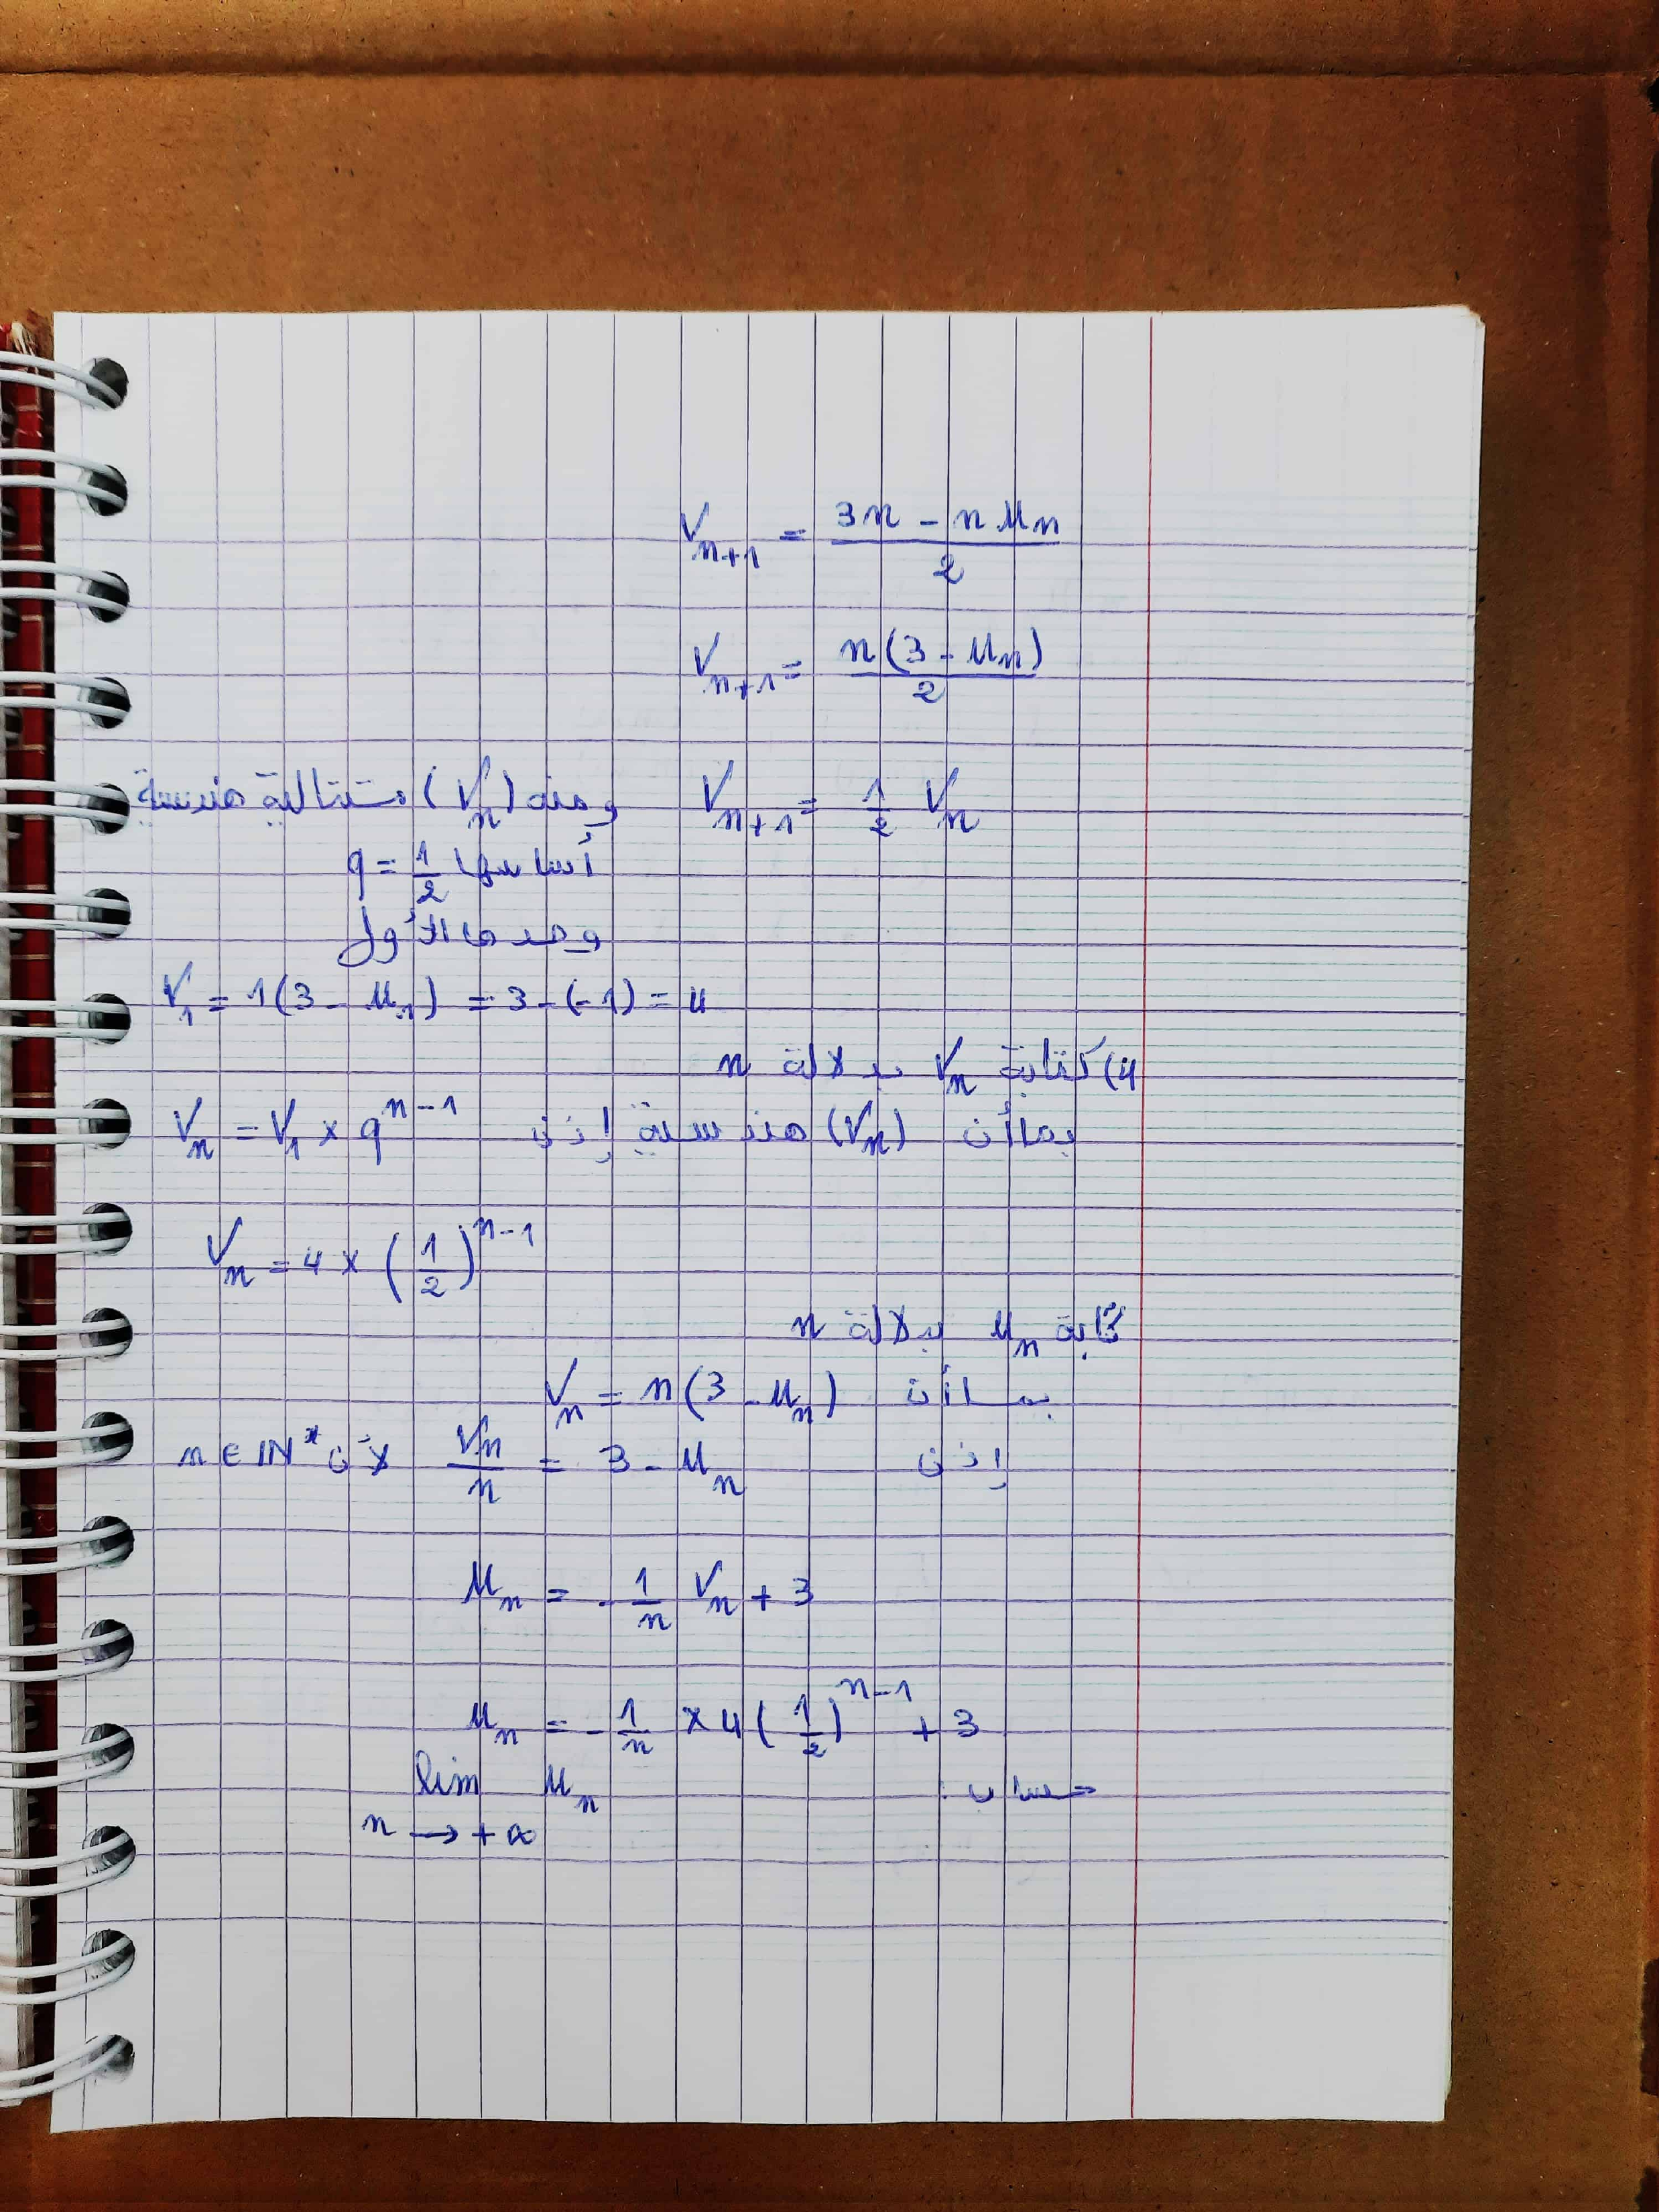 V_{n+1} = \frac{3n - n u_n}{2}
V_{n+1} = \frac{n(3 - u_n)}{2}
V_{n+1} = \frac{1}{2} V_n ومنه (V_n) متتالية هندسية
أساسها q = \frac{1}{2}
وحدها الأول
V_1 = 1(3 - u_1) = 3 - (-1) = 4
4) كتابة V_n بدلالة n
بما أن (V_n) هندسية إذن V_n = V_1 × q^{n-1}
V_n = 4 × (\frac{1}{2})^{n-1}
كتابة u_n بدلالة n
بما أن V_n = n(3 - u_n)
إذن \frac{V_n}{n} = 3 - u_n لأن n ∈ IN*
u_n = -\frac{1}{n} V_n + 3
u_n = -\frac{1}{n} × 4(\frac{1}{2})^{n-1} + 3
حساب : lim u_n
n → +∞